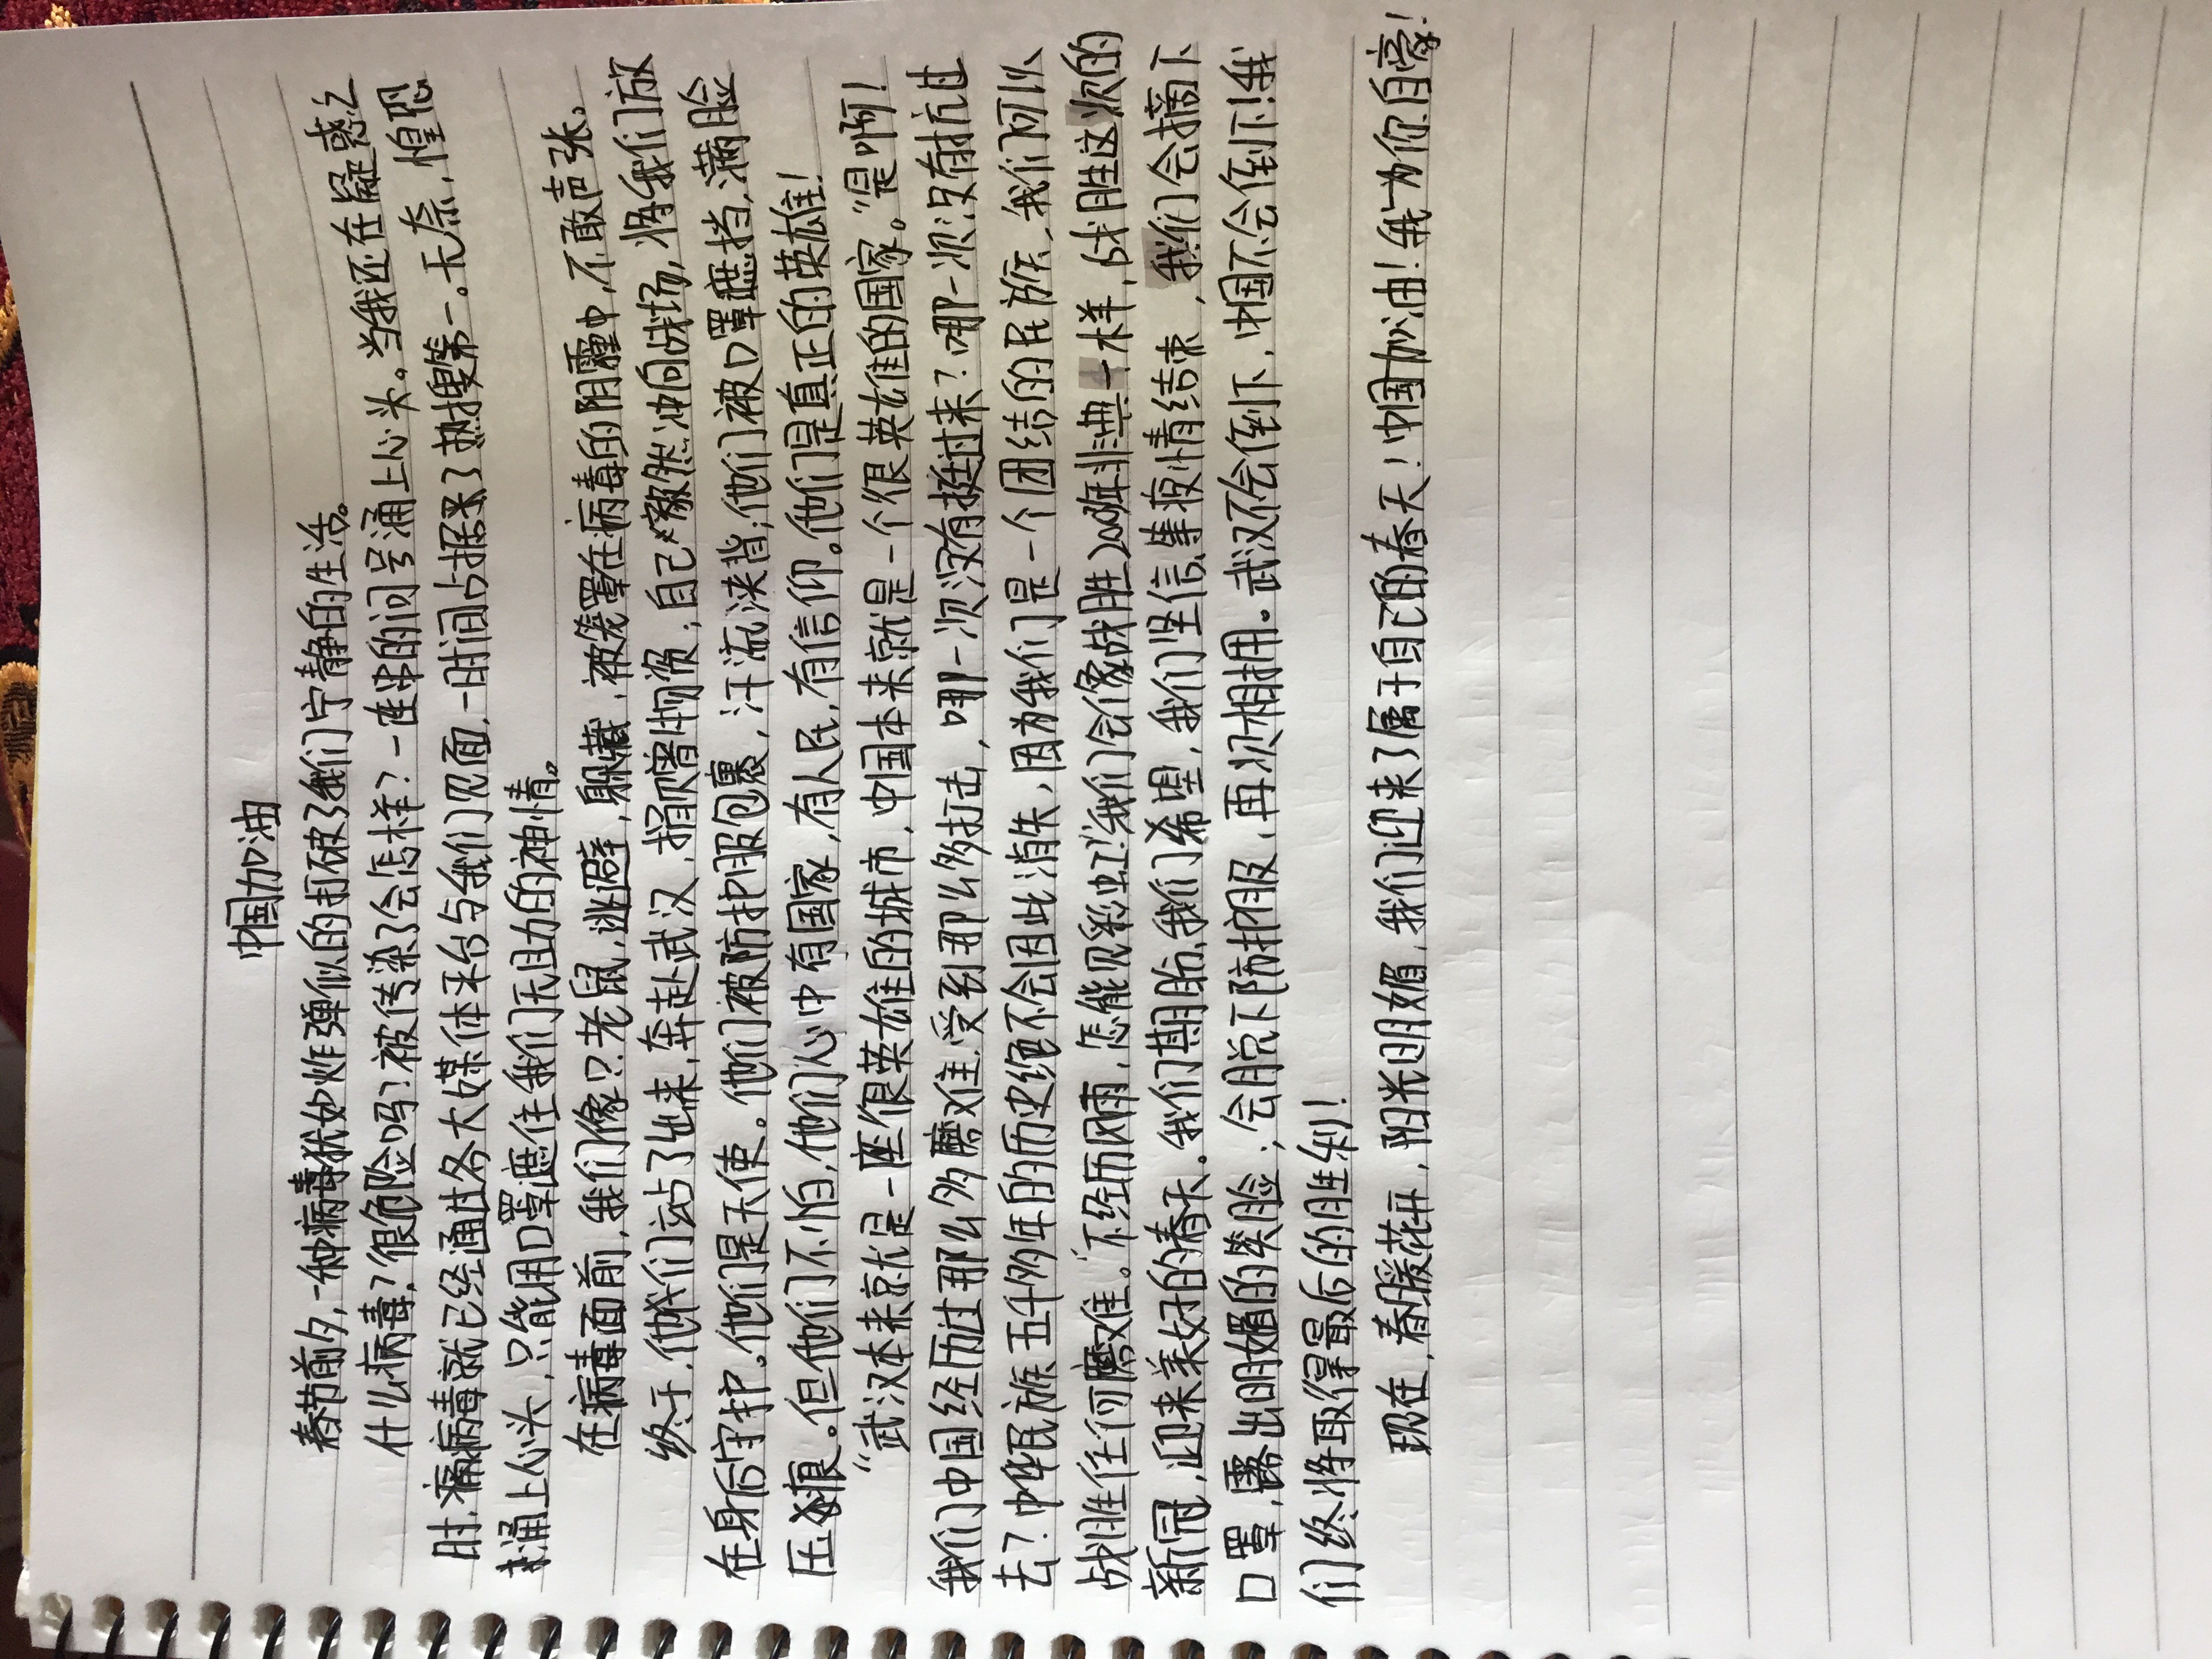 中国加油
春节前夕,一种病毒犹如炸弹似的打破了我们宁静的生活。
什么病毒?很危险吗?被传染了会怎样?一连串的问号涌上心头。当我还在疑惑之
时,病毒就已经通过各大媒体平台与我们见面,一时间占据了热搜第一。无奈,惶恐
涌上心头,只能用口罩遮住我们无助的神情。
在病毒面前,我们像只老鼠,逃避,躲藏,被笼罩在病毒的阴霾中,不敢声张。
终于,他们站了出来,奔赴武汉,捐赠物资;自己毅然冲向战场,将我们放
在身后守护。他们是天使。他们被防护服包裹,汗流浃背;他们被口罩遮挡,满脸
压痕。但他们不怕,他们心中有国家,有人民,有信仰。他们是真正的英雄!
“武汉本来就是一座很英雄的城市,中国本来就是一个很英雄的国家。”是啊!
我们中国经历过那么多磨难,受到那么多打击,哪一次没有挺过来?哪一次没有抗过
去?中华民族五千多年的历史绝不会因此消失,因为我们是一个团结的民族,我们可以
战胜任何磨难。“不经历风雨,怎能见彩虹”我们会像战胜2003年非典一样,战胜这次的
新冠,迎来美好的春天。我们期盼,我们希望,我们坚信,等疫情结束,我们会摘下
口罩,露出明媚的笑脸;会脱下防护服,再次相拥。武汉不会倒下,中国不会倒下!我
们终将取得最后的胜利!
现在,春暖花开,阳光明媚,我们迎来了属于自己的春天!中国加油!我为你自豪!